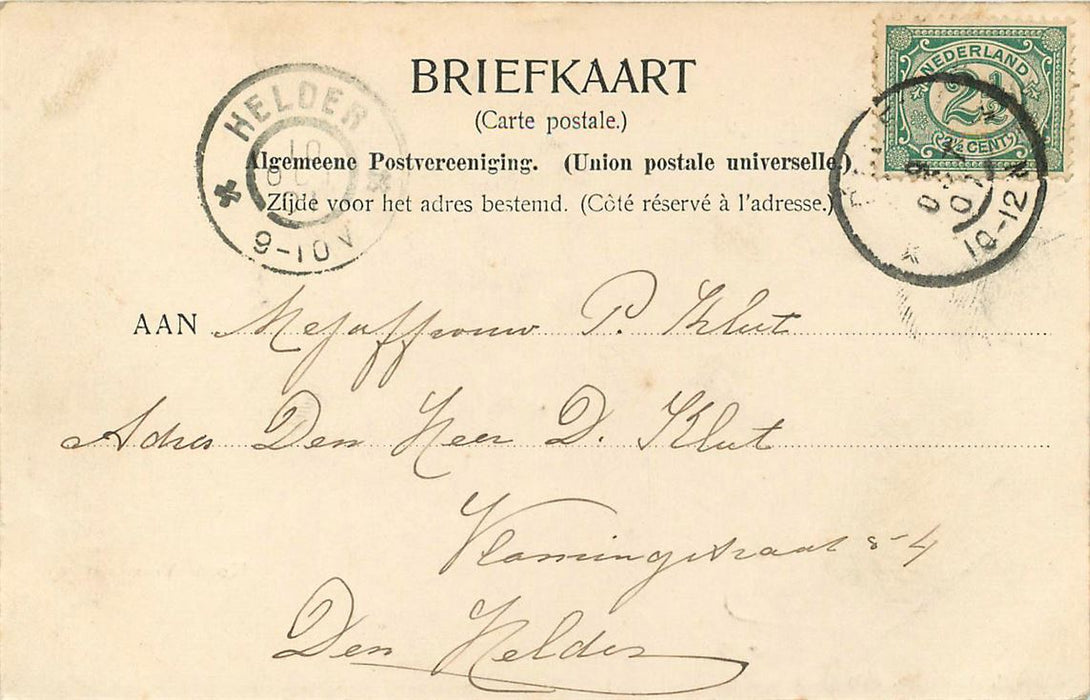 BRIEFKAART
(Carte postale.)
Algemeene Postvereeniging. (Union postale universelle.)
Zijde voor het adres bestemd. (Côté réservé à l'adresse.)
NEDERLAND
2½
2½ CENT
HELDER
9-10V
10-12
AAN Mejuffrouw P. Klut
Adres Den Heer D. Klut
Vlamingstraat 54
Den Helder